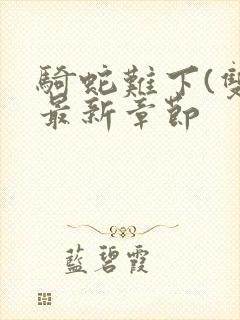 騎蛇難下(雙
最新章節
藍碧霞